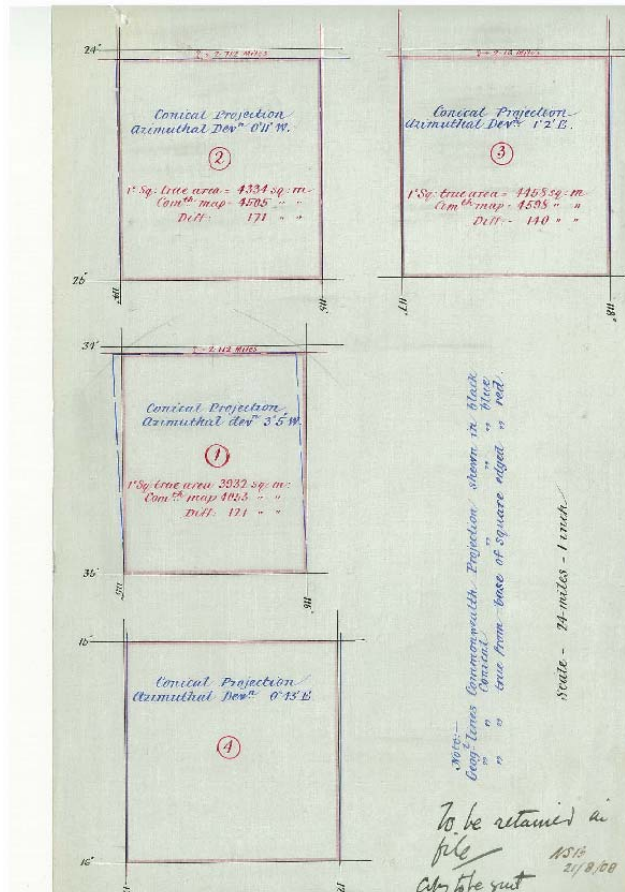 24°
Conical Projection
Azimuthal Devⁿ 0°11' W.
2
1° Sq: true area = 4334 sq: m
Comᵗʰ map = 4505 " "
Diff: 171 " "
25°
114°
115°
Conical Projection
Azimuthal Devⁿ 1°2' E.
3
1° Sq: true area = 4458 sq: m
Comᵗʰ map = 4598 " "
Diff = 140 " "
117°
118°
34°
Conical Projection
Azimuthal devⁿ 3°5' W.
1
1° Sq: true area 3932 sq: m:
Comᵗʰ map 4053 " "
Diff: 121 " "
35°
115°
116°
15°
Conical Projection
Azimuthal Devⁿ 0°43' E
4
16°
Note:—
Geogˡ lines Commonwealth Projection shown in black
" " Conical " " " blue
" " true from base of square edged " red.
Scale - 24 miles - 1 inch
To be retained on
file
21/8/08